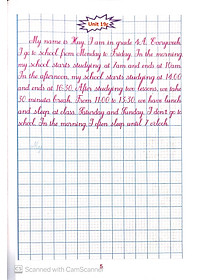 Unit 19
My name is Huy. I am in grade 4A. Everyweek,
I go to school from Monday to Friday. In the morning
my school starts studying at 7am and ends at 10am.
In the afternoon, my school starts studying at 14:00
and ends at 16:30. After studying two lessons, we take
30 minutes break. From 11:00 to 13:30, we have lunch
and sleep at class. Saturday and Sunday, I don't go to
school. In the morning I often sleep until 7 o'clock
5
CS Scanned with CamScanner